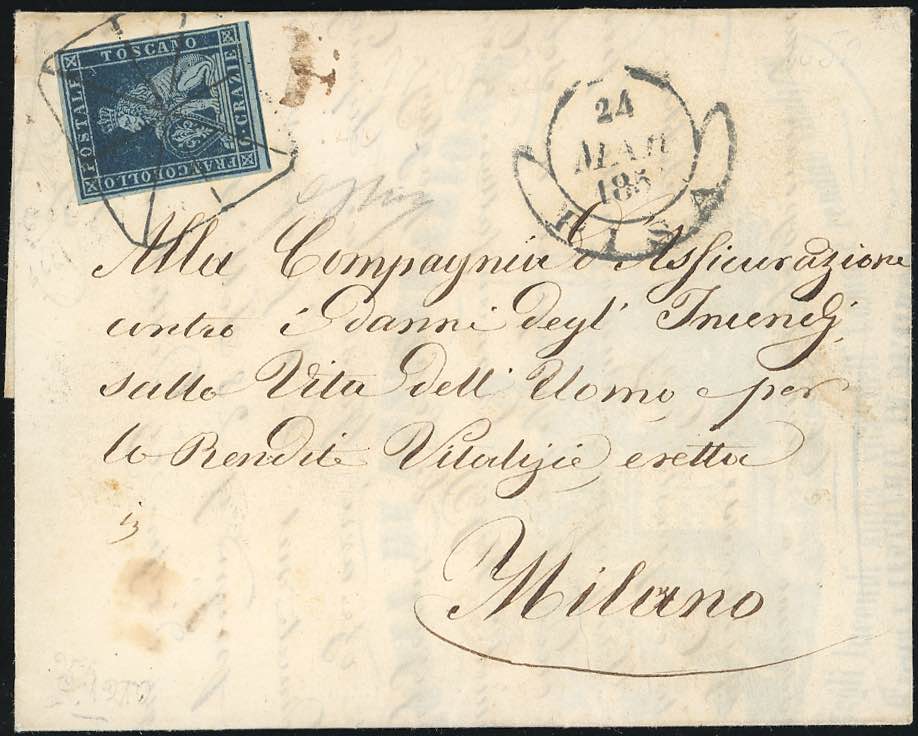 FRANCOBOLLO
POSTALE
TOSCANO
6·GRAZIE
24
MAR
185
PISA
Alla Compagnia d'Assicurazione
contro i danni degl' Incendj,
sulla Vita dell' Uomo e per
le Rendite Vitalizie eretta
in
Milano